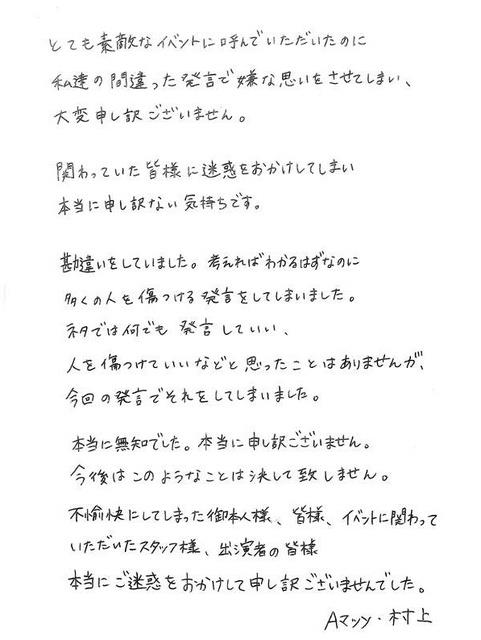 とても素敵なイベントに呼んでいただいたのに
私達の間違った発言で嫌な思いをさせてしまい、
大変申し訳ございません。
関わっていた皆様に迷惑をおかけしてしまい
本当に申し訳ない気持ちです。
勘違いをしていました。考えればわかるはずなのに
多くの人を傷つける発言をしてしまいました。
ネタでは何でも発言していい、
人を傷つけていいなどと思ったことはありませんが、
今回の発言でそれをしてしまいました。
本当に無知でした。本当に申し訳ございません。
今後はこのようなことは決して致しません。
不愉快にしてしまった御本人様、皆様、イベントに関わって
いただいたスタッフ様、出演者の皆様
本当にご迷惑をおかけして申し訳ございませんでした。
Aマッソ・村上